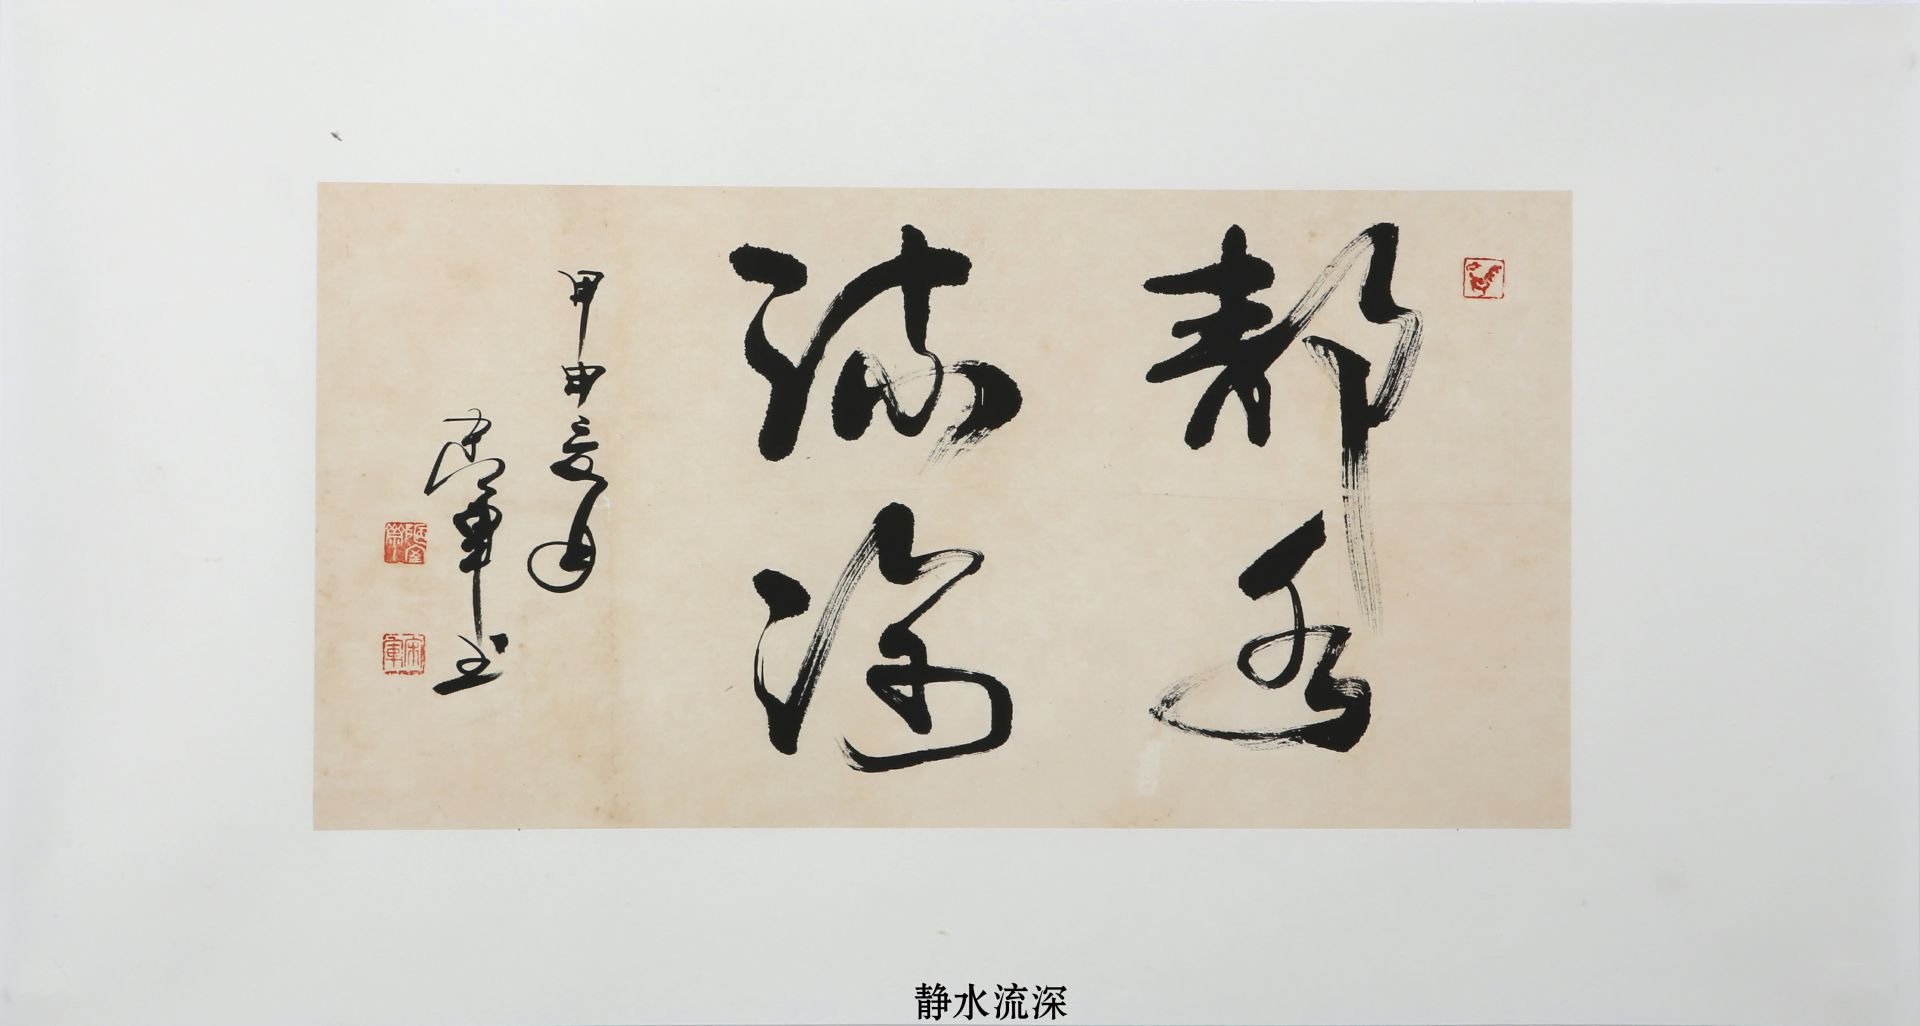 静水
流深
甲申夏月
宗军书
静水流深